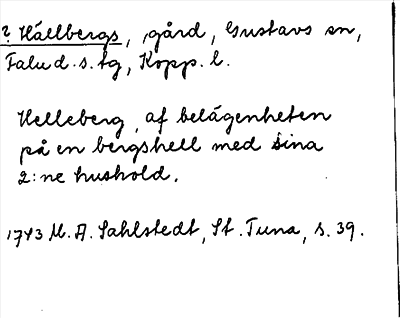 ? Hällbergs, gård, Gustavs sn,
Falu d. s. tg, Kopp. l.
Helleberg, af belägenheten
på en bergshell med sina
2:ne hushold.
1743 M. A. Sahlstedt, St. Tuna, s. 39.